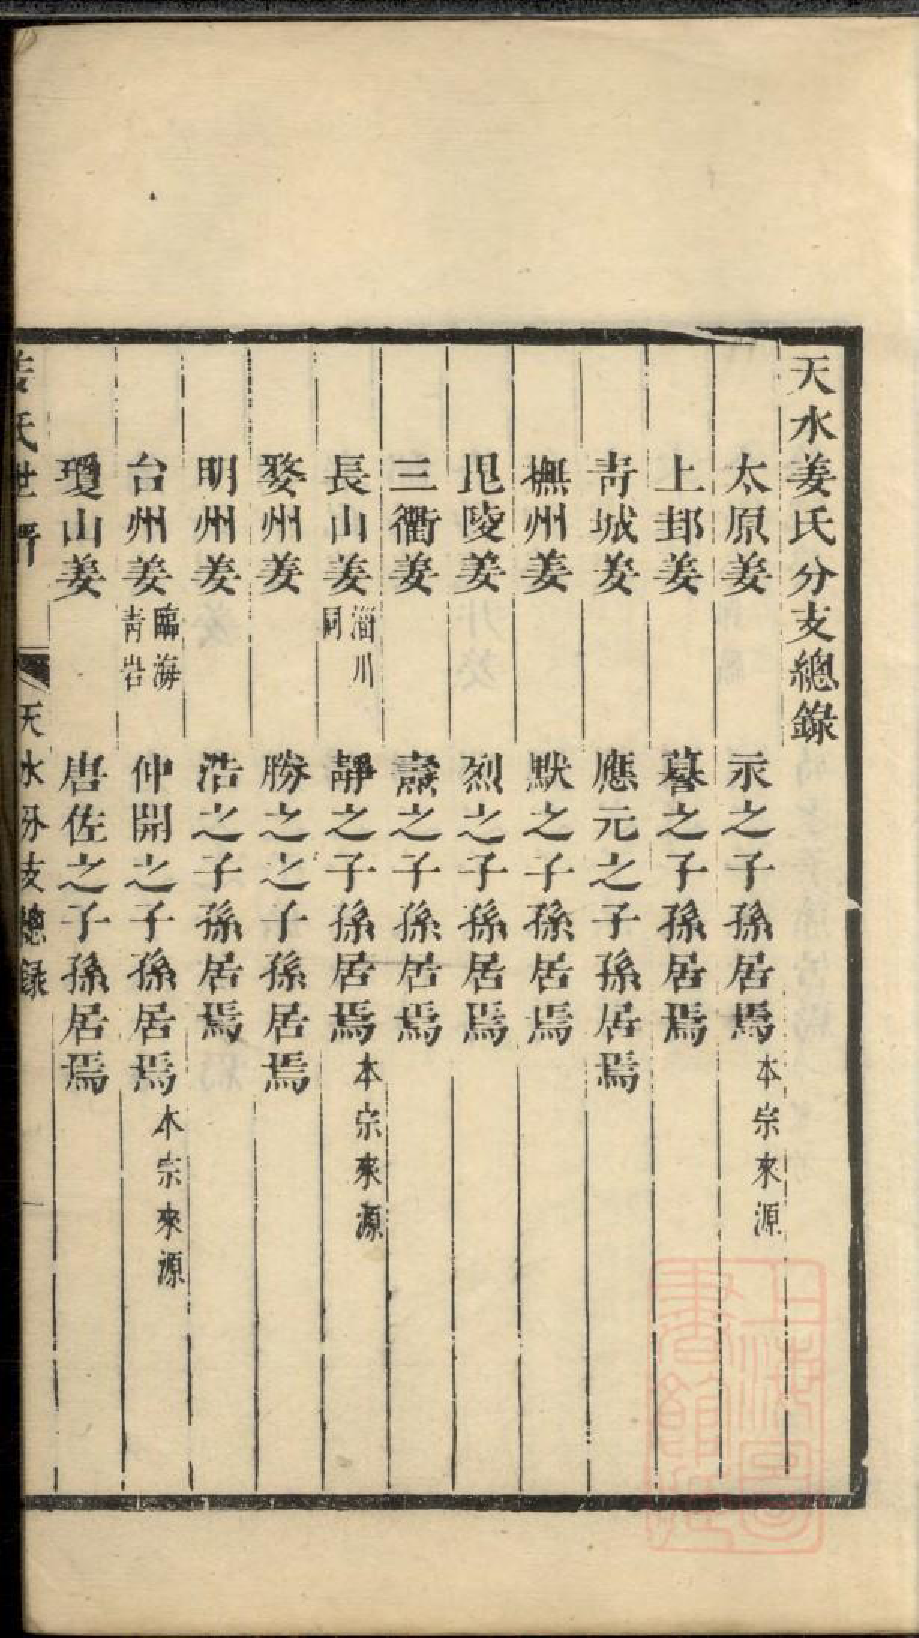 天水姜氏分支總錄
太原姜 汞之子孫居焉 本宗來源
上邽姜 暮之子孫居焉
靑城姜 應元之子孫居焉
撫州姜 默之子孫居焉
毘陵姜 烈之子孫居焉
三衢姜 燾之子孫居焉
長山姜 淄川同 靜之子孫居焉 本宗來源
婺州姜 勝之之子孫居焉
明州姜 浩之子孫居焉
台州姜 臨海靑岩 仲開之子孫居焉 本宗來源
瓊山姜 唐佐之子孫居焉
姜氏世譜 天水分支總錄 一
上海圖書館藏